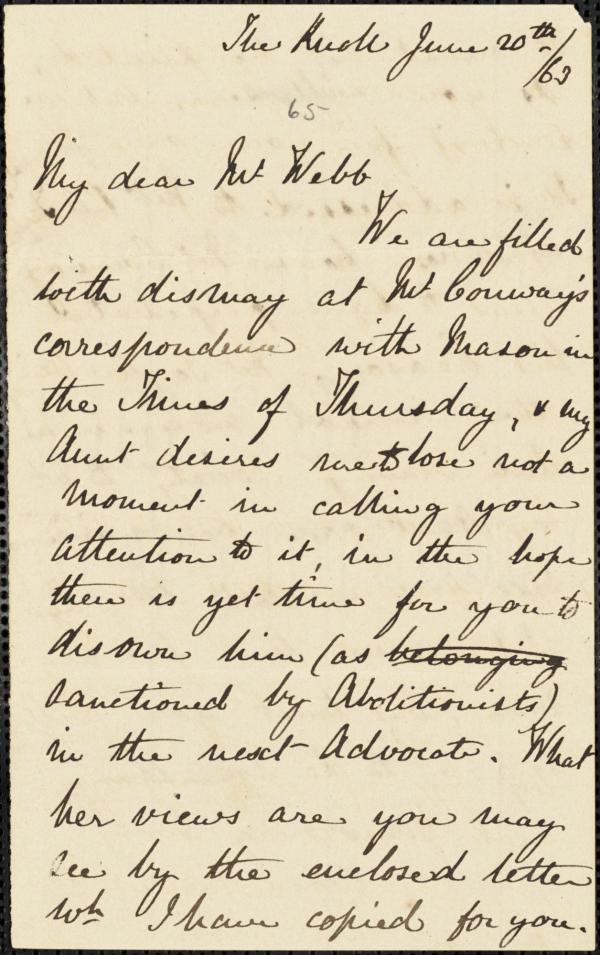 The Knoll June 20th/63
65
My dear Mr Webb
We are filled
with dismay at Mr Conway's
correspondence with Mason in
the Times of Thursday, & my
Aunt desires me to lose not a
moment in calling your
attention to it, in the hope
there is yet time for you to
disown him (as belonging
sanctioned by Abolitionists)
in the next Advocate. What
her views are you may
see by the enclosed letter
wh I have copied for you.